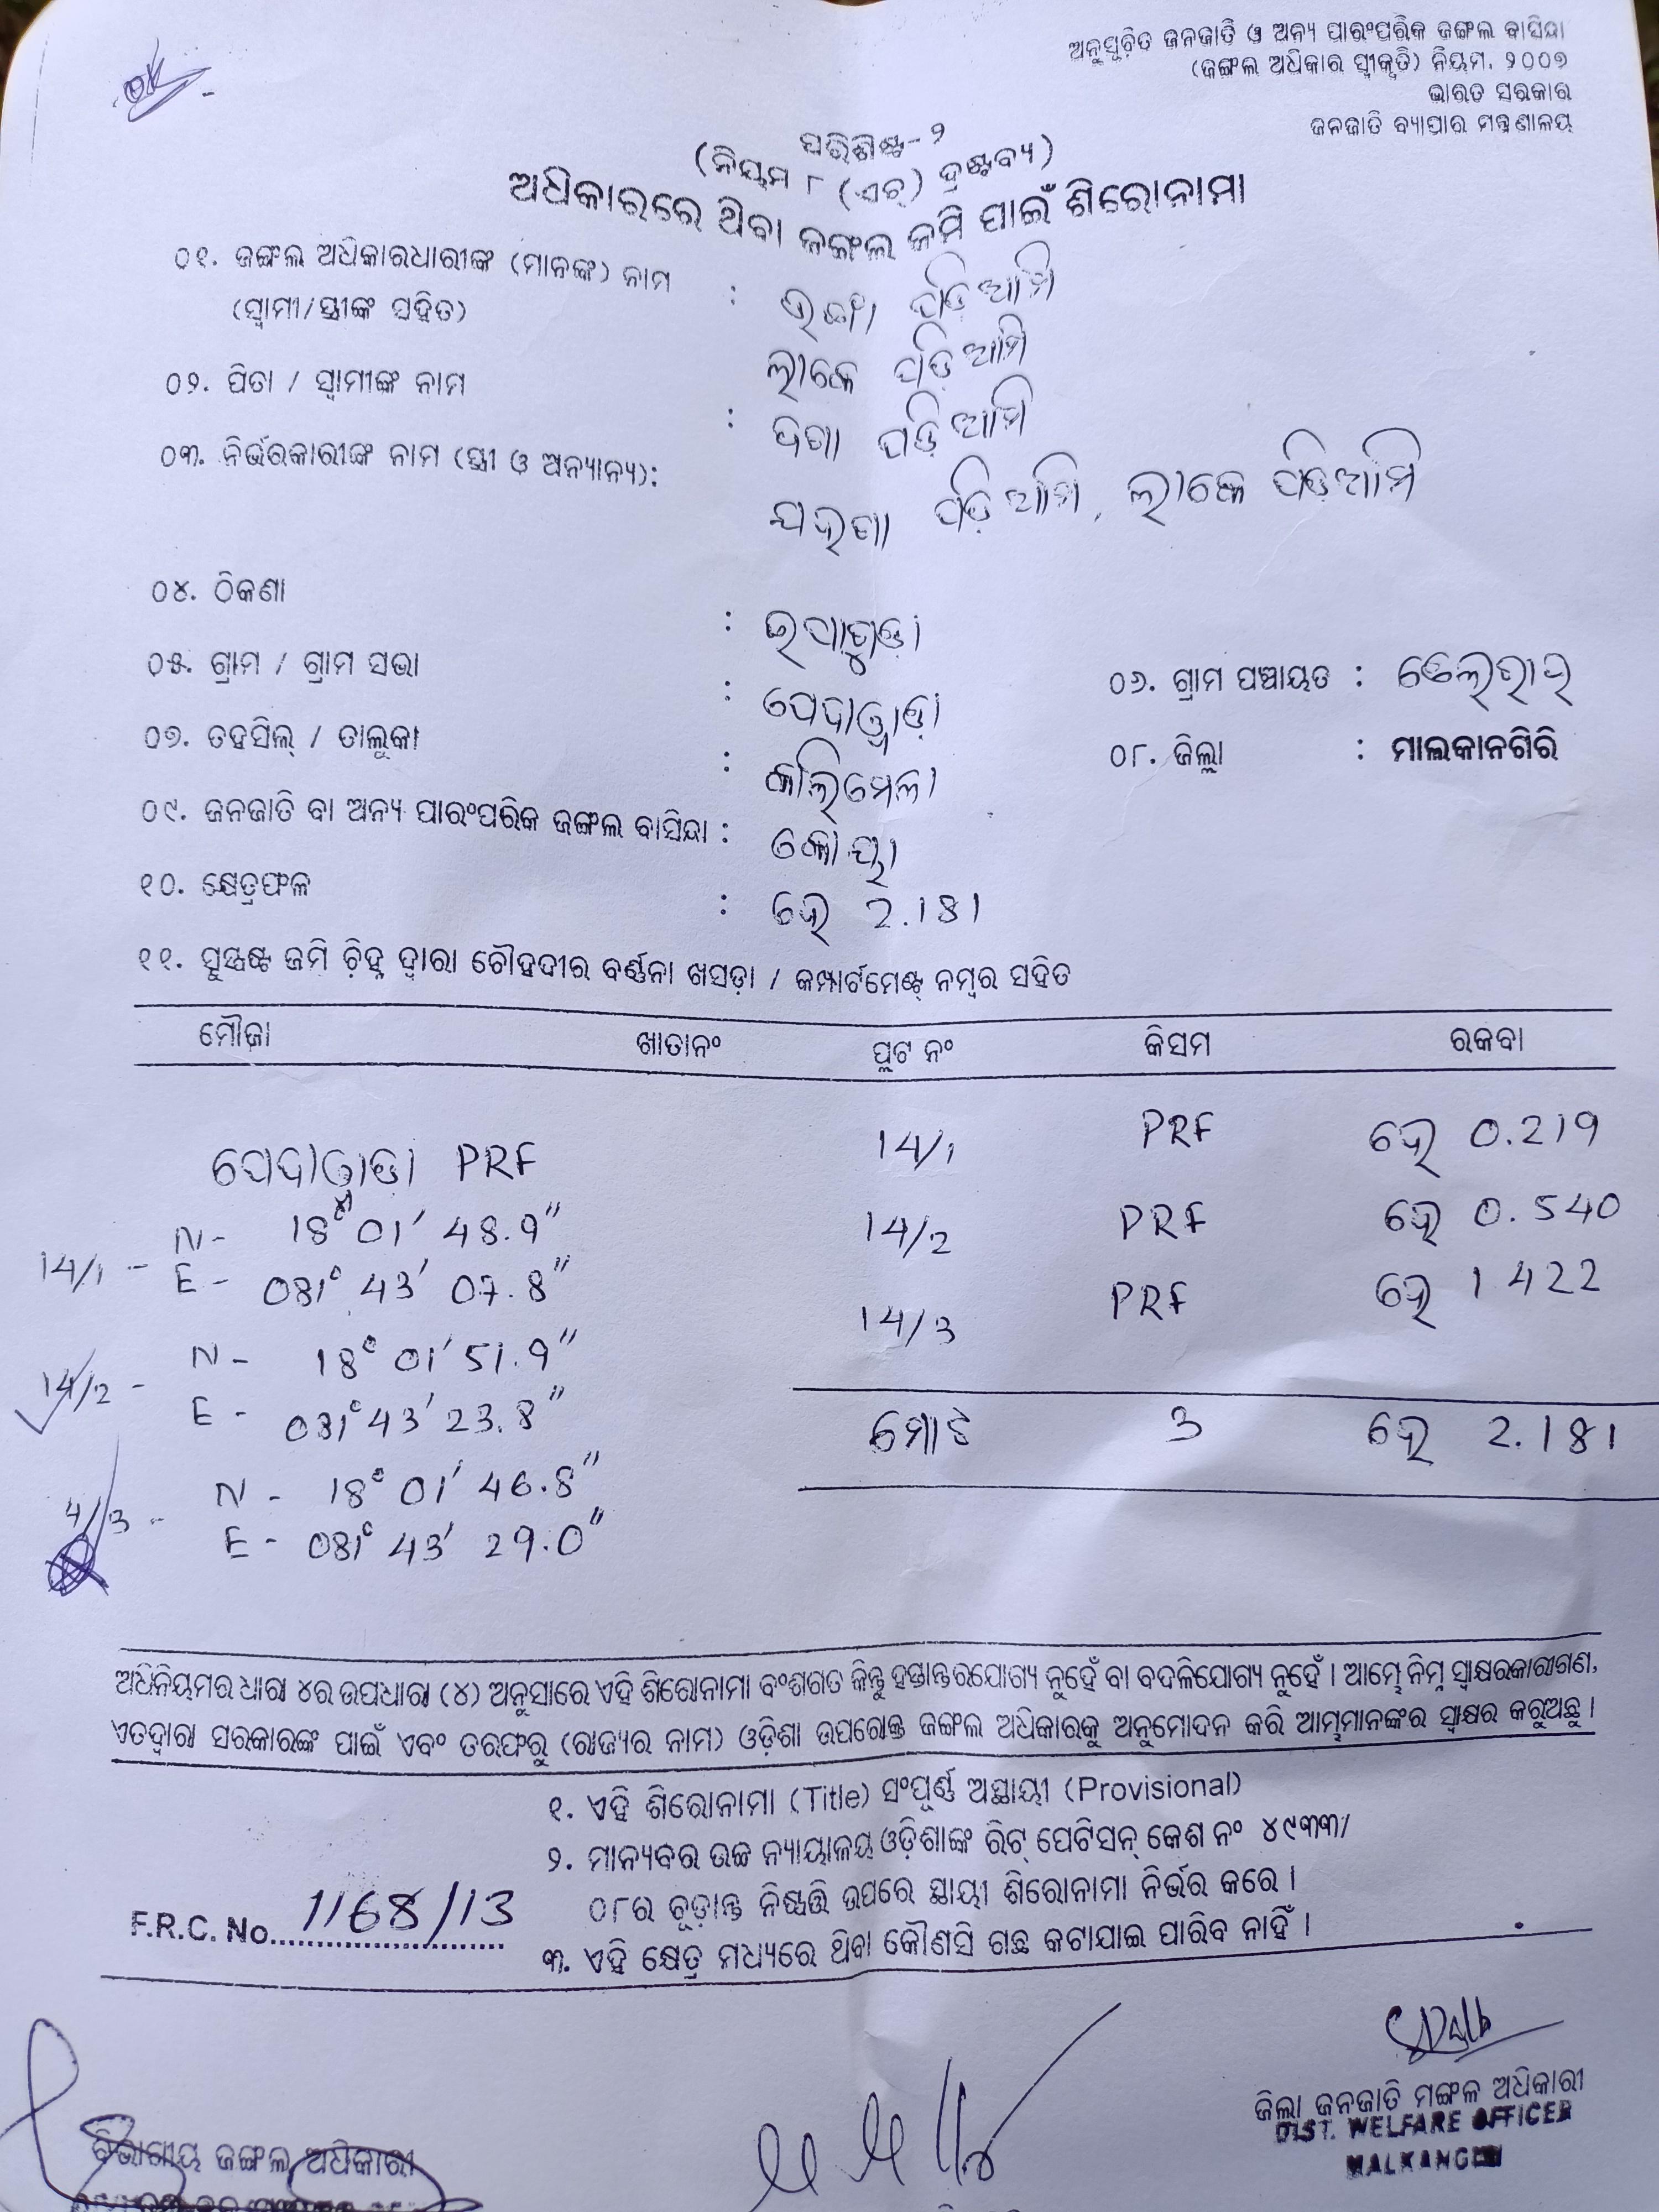 ଅନୁସୂଚିତ ଜନଜାତି ଓ ଅନ୍ୟ ପାରଂପରିକ ଜଙ୍ଗଲ ବାସିନ୍ଦା
(ଜଙ୍ଗଲ ଅଧିକାର ସ୍ୱୀକୃତି) ନିୟମ. ୨୦୦୭
ଭାରତ ସରକାର
ଜନଜାତି ବ୍ୟାପାର ମନ୍ତ୍ରଣାଳୟ
ପରିଶିଷ୍ଟ-୨
(ନିୟମ ୮ (ଏଚ୍) ଦ୍ରଷ୍ଟବ୍ୟ)
ଅଧିକାରରେ ଥିବା ଜଙ୍ଗଲ ଜମି ପାଇଁ ଶିରୋନାମା
୦୧. ଜଙ୍ଗଲ ଅଧିକାରଧାରୀଙ୍କ (ମାନଙ୍କ) ନାମ : ପଡ଼ିଆମି
(ସ୍ୱାମୀ/ସ୍ତ୍ରୀଙ୍କ ସହିତ) ଲାକେ ପଡ଼ିଆମି
୦୨. ପିତା / ସ୍ୱାମୀଙ୍କ ନାମ : ପଡ଼ିଆମି
୦୩. ନିର୍ଭରକାରୀଙ୍କ ନାମ (ସ୍ତ୍ରୀ ଓ ଅନ୍ୟାନ୍ୟ): ପଡ଼ିଆମି, ଲାକେ ପଡ଼ିଆମି
୦୪. ଠିକଣା :
୦୫. ଗ୍ରାମ / ଗ୍ରାମ ସଭା : ପେଦାୱାଡ଼ା ୦୬. ଗ୍ରାମ ପଞ୍ଚାୟତ :
୦୭. ତହସିଲ୍ / ତାଲୁକା : କାଲିମେଳା ୦୮. ଜିଲ୍ଲା : ମାଲକାନଗିରି
୦୯. ଜନଜାତି ବା ଅନ୍ୟ ପାରଂପରିକ ଜଙ୍ଗଲ ବାସିନ୍ଦା : କୋୟା
୧୦. କ୍ଷେତ୍ରଫଳ : ହେ 2.181
୧୧. ସୁସ୍ପଷ୍ଟ ଜମି ଚ଼ିହ୍ନ ଦ୍ୱାରା ଚୌହଦୀର ବର୍ଣ୍ଣନା ଖସଡ଼ା / କମ୍ପାର୍ଟମେଣ୍ଟ୍ ନମ୍ବର ସହିତ
ମୌଜା ଖାତାନଂ ପ୍ଲଟ ନଂ କିସମ ରକବା
ପେଦାୱାଡ଼ା PRF 14/1 PRF ହେ 0.219
14/1 - N - 18° 01' 48.9" 14/2 PRF ହେ 0.540
E - 081° 43' 07.8" 14/3 PRF ହେ 1 422
14/2 - N - 18° 01' 51.9"
E - 081° 43' 23.8" ମୋଟ 3 ହେ 2.181
4/3 - N - 18° 01' 46.8"
E - 081° 43' 29.0"
ଅଧିନିୟମର ଧାରା ୪ର ଉପଧାରା (୪) ଅନୁସାରେ ଏହି ଶିରୋନାମା ବଂଶଗତ କିନ୍ତୁ ହସ୍ତାନ୍ତରଯୋଗ୍ୟ ନୁହେଁ ବା ବଦଳିଯୋଗ୍ୟ ନୁହେଁ । ଆମ୍ଭେ ନିମ୍ନ ସ୍ୱାକ୍ଷରକାରୀଗଣ,
ଏତଦ୍ୱାରା ସରକାରଙ୍କ ପାଇଁ ଏବଂ ତରଫରୁ (ରାଜ୍ୟର ନାମ) ଓଡ଼ିଶା ଉପରୋକ୍ତ ଜଙ୍ଗଲ ଅଧିକାରକୁ ଅନୁମୋଦନ କରି ଆମ୍ଭମାନଙ୍କର ସ୍ୱାକ୍ଷର କରୁଅଛୁ ।
୧. ଏହି ଶିରୋନାମା (Title) ସଂପୂର୍ଣ୍ଣ ଅସ୍ଥାୟୀ (Provisional)
୨. ମାନ୍ୟବର ଉଚ୍ଚ ନ୍ୟାୟାଳୟ ଓଡ଼ିଶାଙ୍କ ରିଟ୍ ପେଟିସନ୍ କେଶ ନଂ ୪୯୩୩/
୦୮ର ଚୂଡ଼ାନ୍ତ ନିଷ୍ପତ୍ତି ଉପରେ ସ୍ଥାୟୀ ଶିରୋନାମା ନିର୍ଭର କରେ ।
F.R.C. No. 1168/13
୩. ଏହି କ୍ଷେତ୍ର ମଧ୍ୟରେ ଥିବା କୌଣସି ଗଛ କଟାଯାଇ ପାରିବ ନାହିଁ ।
ବିଭାଗୀୟ ଜଙ୍ଗଲ ଅଧିକାରୀ
ଜିଲ୍ଲା ଜନଜାତି ମଙ୍ଗଳ ଅଧିକାରୀ
DIST. WELFARE OFFICER